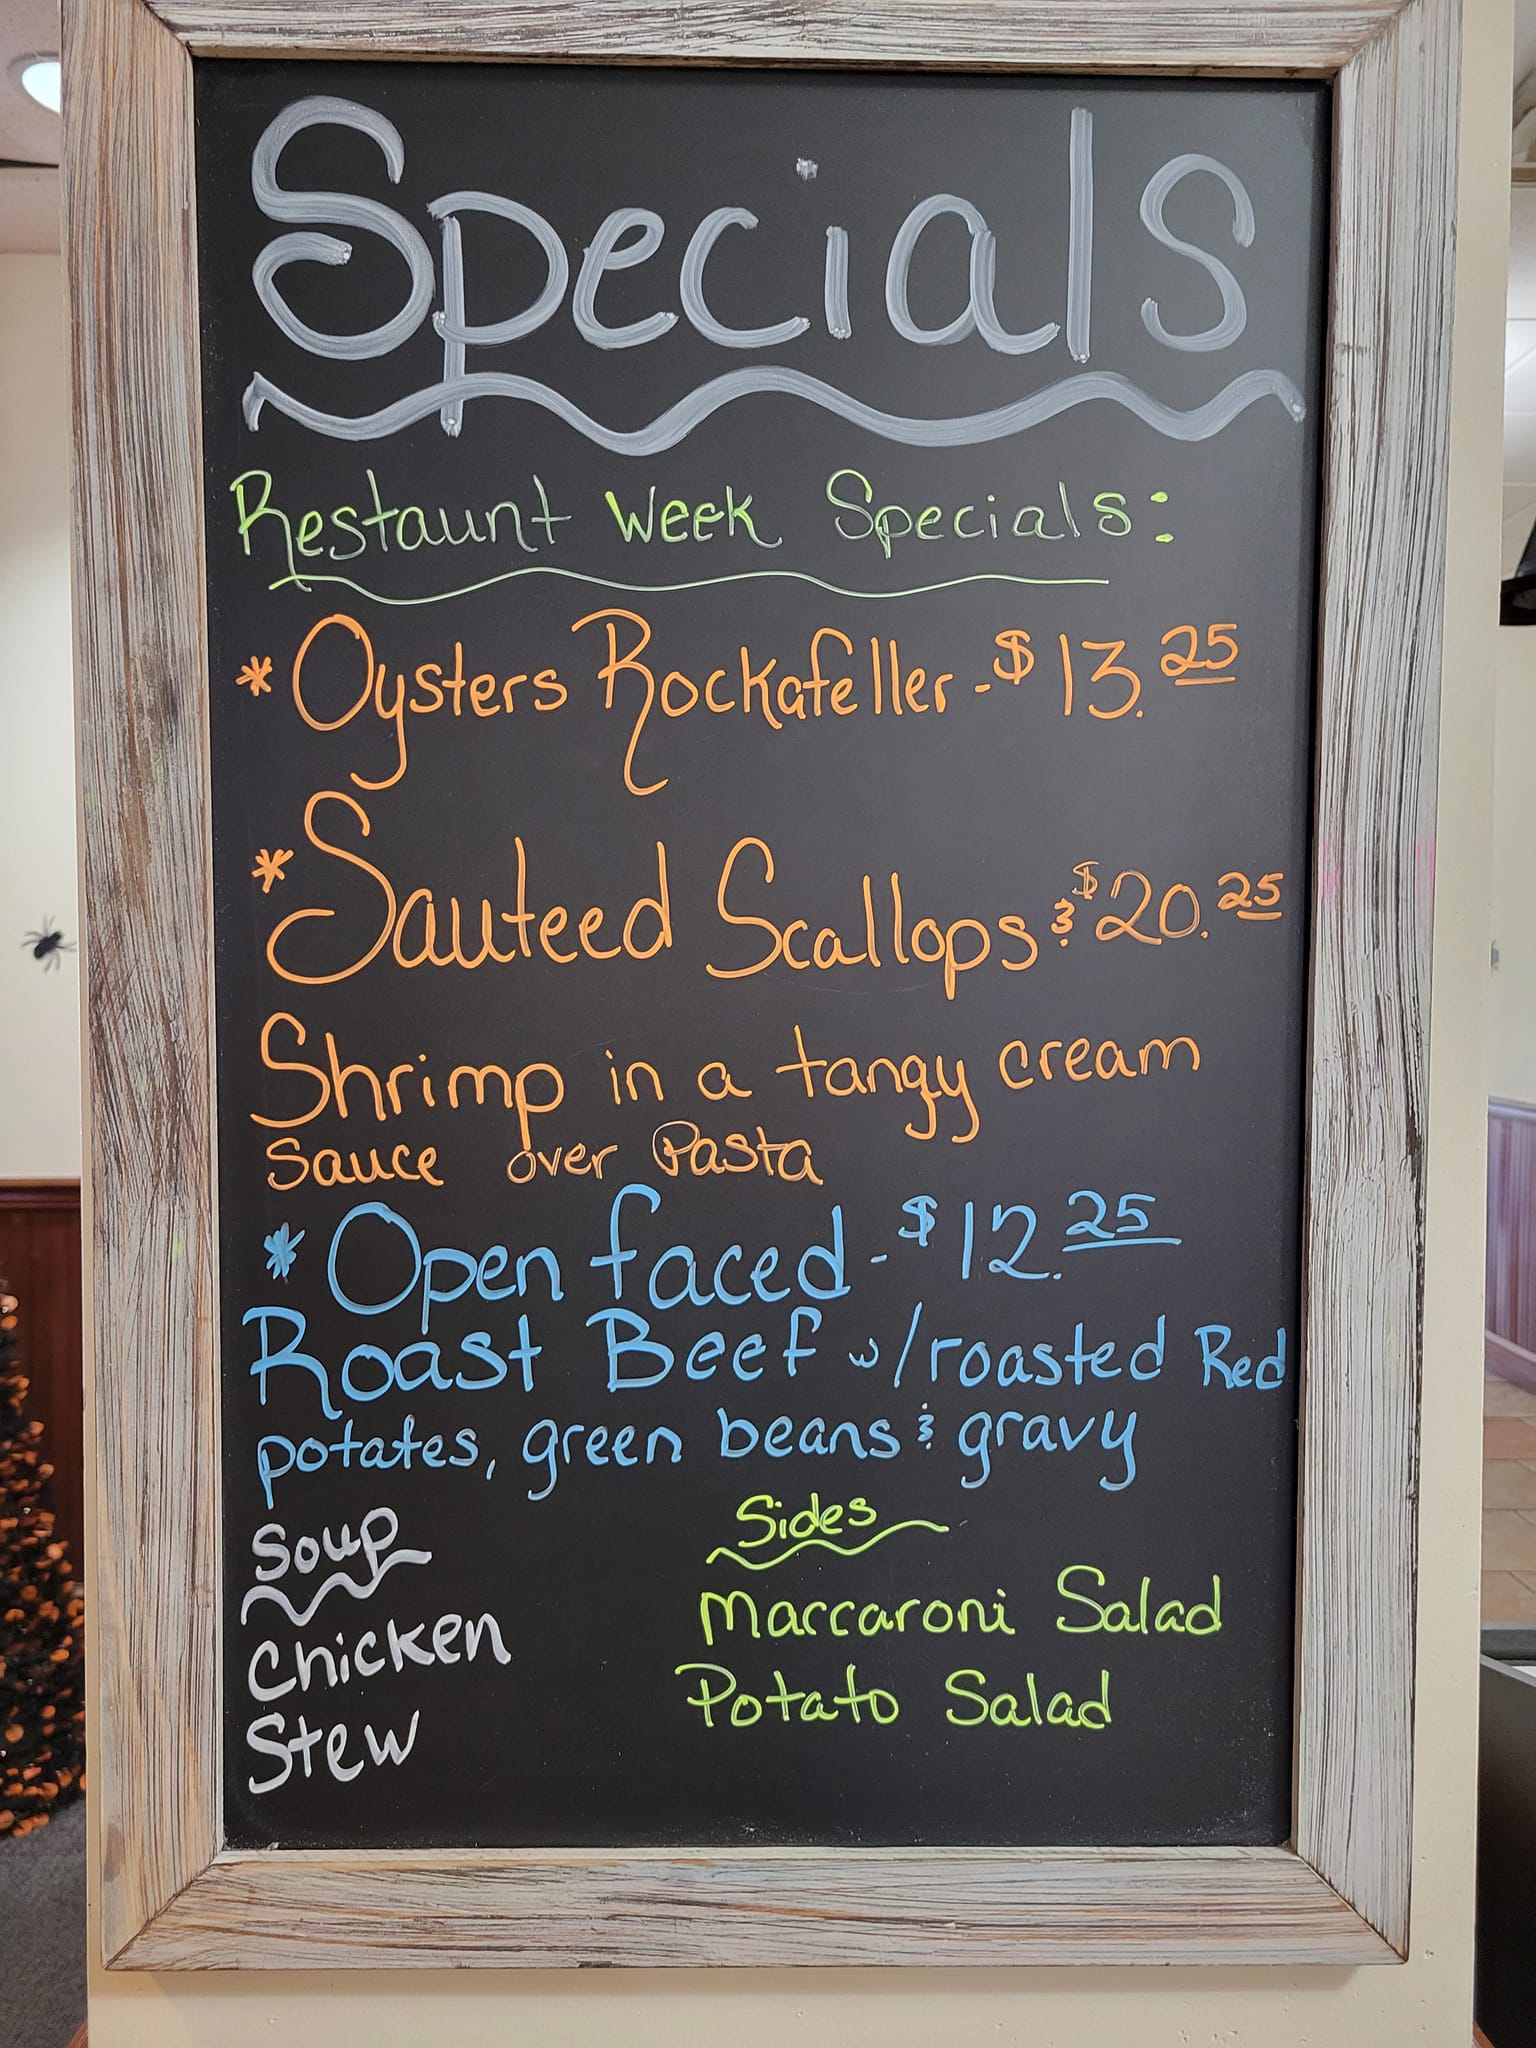 Specials
Restaunt Week Specials:
* Oysters Rockafeller - $13.25
* Sauteed Scallops & $20.25
Shrimp in a tangy cream
sauce over Pasta
* Open faced - $12.25
Roast Beef w/roasted Red
potates, green beans & gravy
Soup
Chicken
Stew
Sides
Maccaroni Salad
Potato Salad